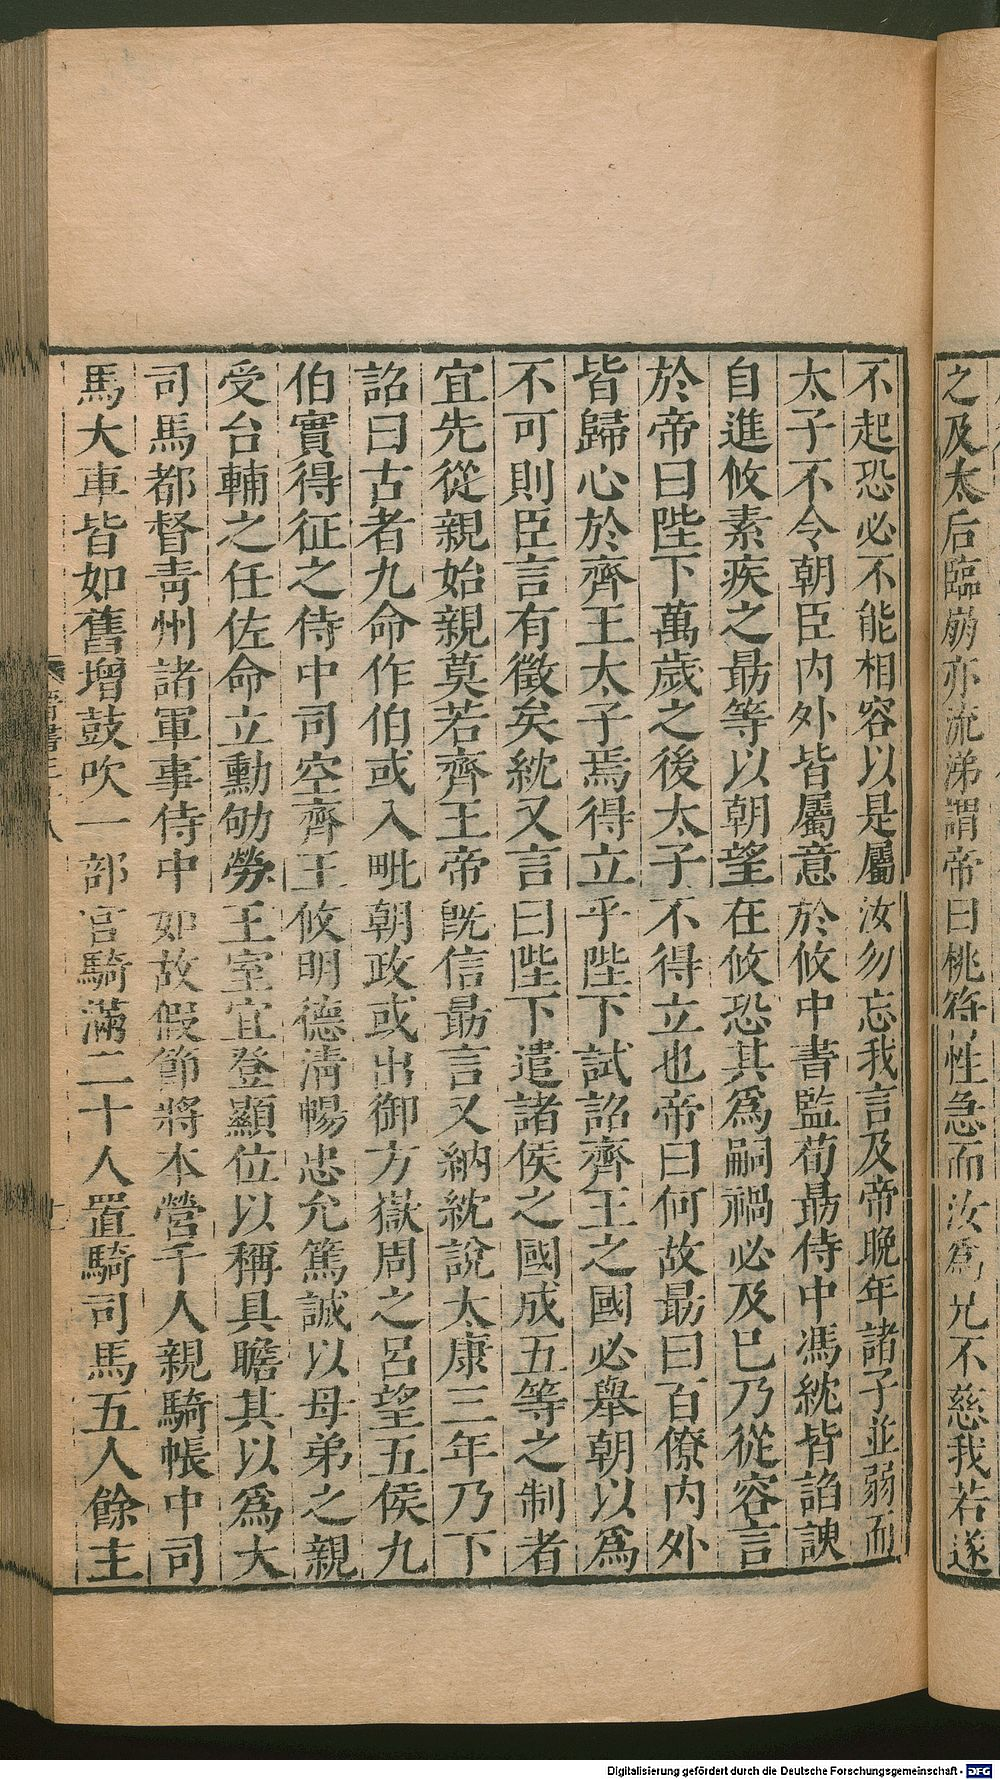 之及太后臨崩亦流涕謂帝曰桃符性急而汝爲兄不慈我若遂
不起恐必不能相容以是屬汝勿忘我言及帝晚年諸子並弱而
太子不令朝臣内外皆屬意於攸中書監荀勗侍中馮紞皆諂諛
自進攸素疾之勗等以朝望在攸恐其爲嗣禍必及巳乃從容言
於帝曰陛下萬歲之後太子不得立也帝曰何故勗曰百僚内外
皆歸心於齊王太子焉得立乎陛下試詔齊王之國必舉朝以爲
不可則臣言有徵矣紞又言曰陛下遣諸侯之國成五等之制者
宜先從親始親莫若齊王帝旣信勗言又納紞說太康三年乃下
詔曰古者九命作伯或入毗朝政或出御方嶽周之呂望五侯九
伯實得征之侍中司空齊王攸明德清暢忠允篤誠以母弟之親
受台輔之任佐命立勳劬勞王室宜登顯位以稱具瞻其以爲大
司馬都督青州諸軍事侍中如故假節將本營千人親騎帳中司
馬大車皆如舊增鼓吹一部官騎滿二十人置騎司馬五人餘主
晋書三十八
Digitalisierung gefördert durch die Deutsche Forschungsgemeinschaft - DFG